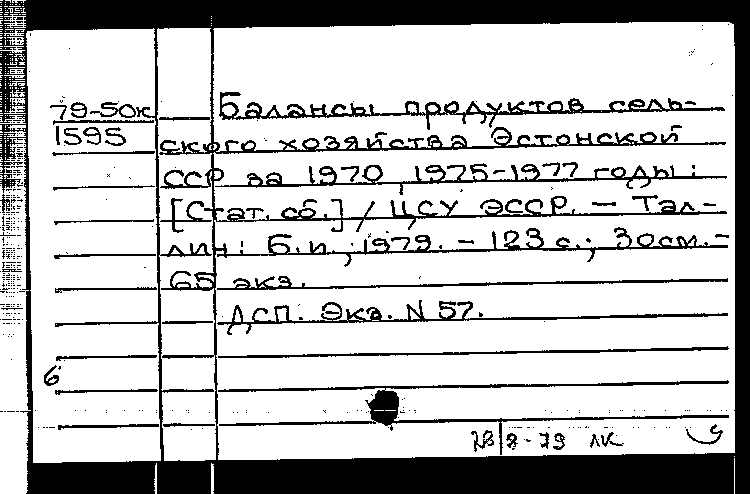 79-50к Балансы продуктов сель-
1595 ского хозяйства Эстонской
ССР за 1970, 1975-1977 годы:
[Стат. сб.] / ЦСУ ЭССР. - Тал-
лин: Б.и., 1979. - 123 с.; 30см.-
65 экз.
ДСП. Экз. N 57.
6
28/8-79 лк